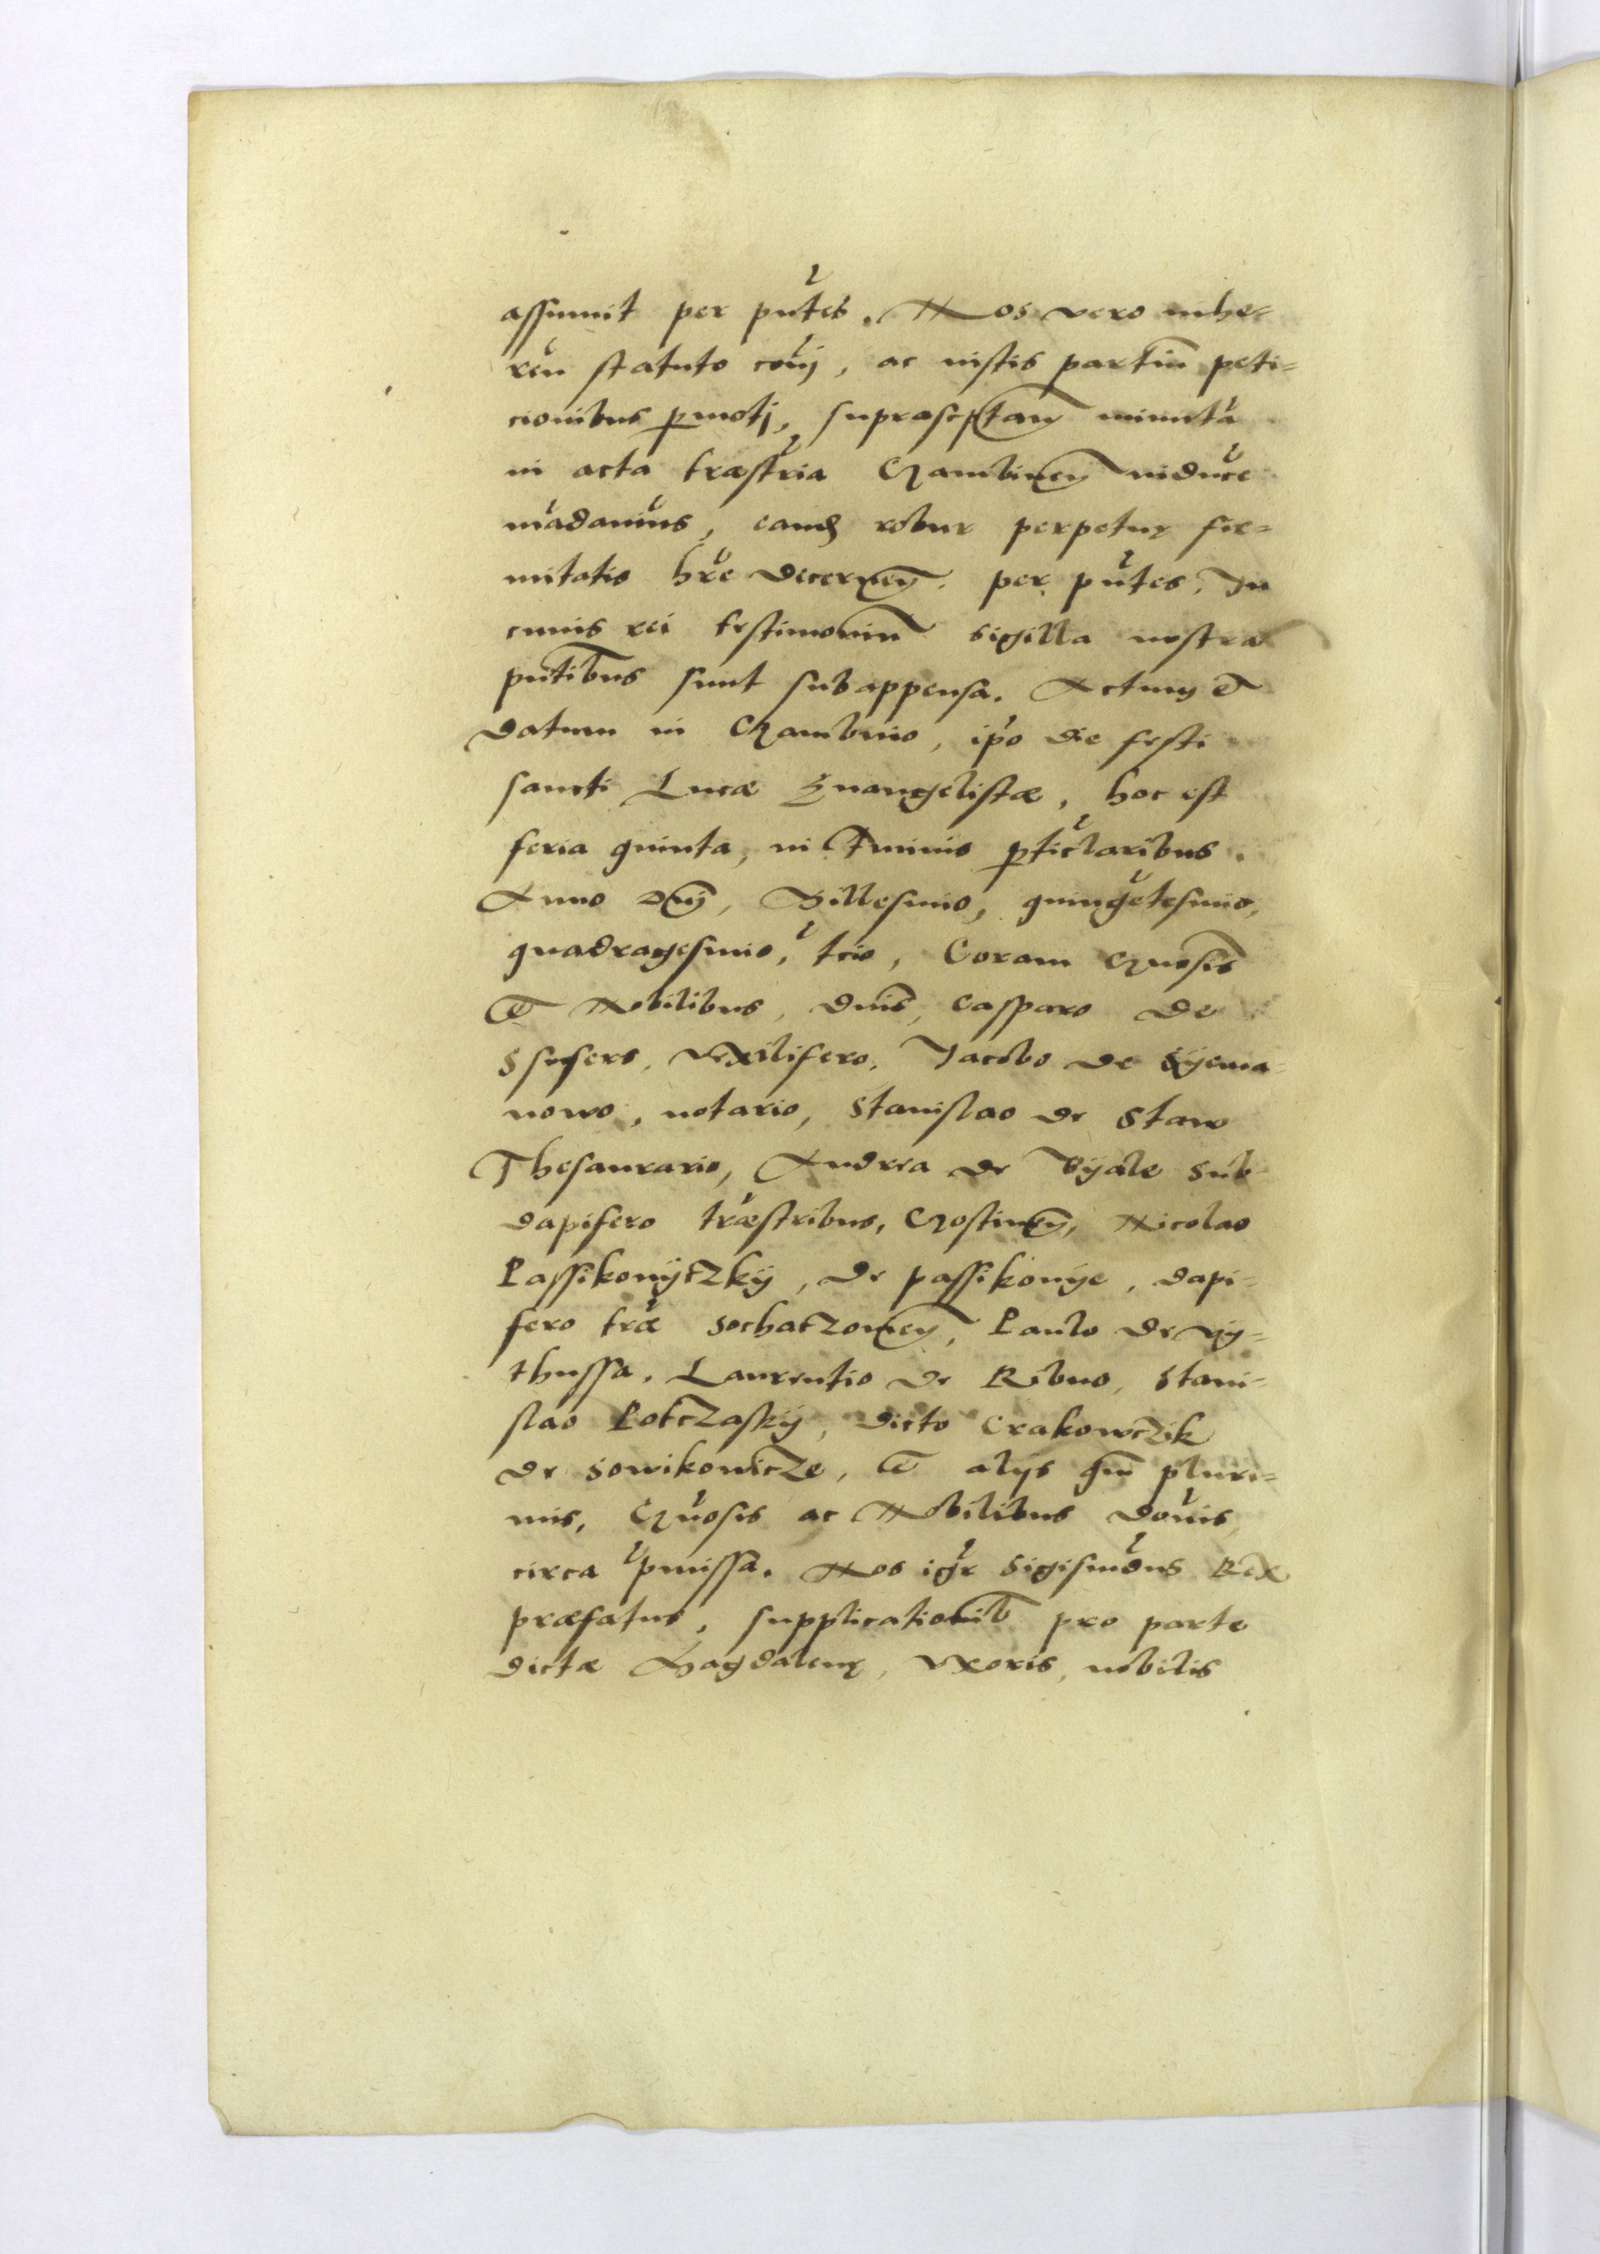 assumit per pñtes. Nos vero inhe-
ren̄ statuto cōi, ac iustis partiū peti-
cionibus p̱moti, suprascptam̄ minutā
in acta træstria Gambineñ induc̄e
mādamus, eamq̨ robur perpetuę fir-
mitatis hr̄e decerneñ. per pñtes. In
cuius rei testimoniū sigilla nostra
pñtibus sunt subappensa. Actum et
datum in Gambino, ip̄o die festi
sancti Lucæ Euangelistæ, hoc est
feria quinta, in Tminis p̱ticlaribus.
Anno Dnj̄, Millesimo, quingētesimo,
quadragesimo, t̄cio, Coram Gnosis̄
et Nobilibus, dnis̄, Casparo de
Vexilifero, Jacobo de Syema-
nowo, notario, Stanislao de Staw
Thesaurario, Andrea de Byale Sub-
dapifero træstribus, Gostineñ, Nicolao
Passikonÿczkÿ, de passikonÿe, dapi-
fero træ Sochaczowieñ, Paulo de Vÿ-
thussa, Laurentio de Ribno, Stani-
slao Potczaskÿ, dicto Crakowczik
de Sowikowicze, et alÿs qm̄ pluri-
mis, Gn̄osis ac Nobilibus dom̄is
circa p̄missa. Nos igr̄ Sigismūdus Rex
præfatus, supplicationib̄ pro parte
dictæ Magdalenę, Vxoris, nobilis